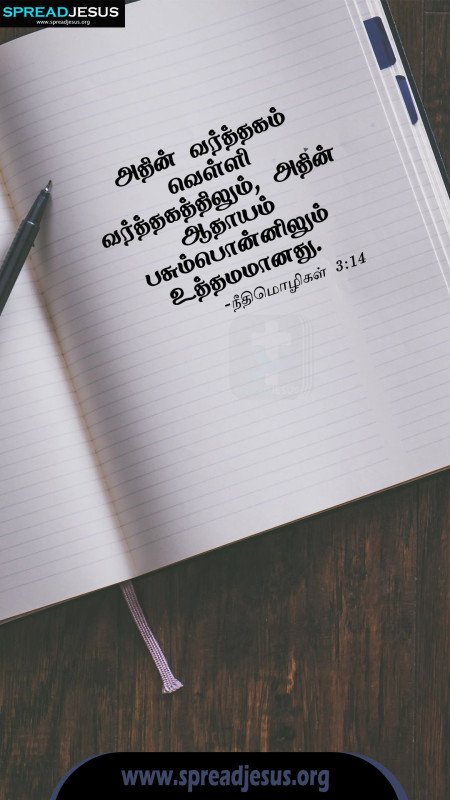 SPREADJESUS
www.spreadjesus.org
அதின் வர்த்தகம்
வெள்ளி
வர்த்தகத்திலும், அதின்
ஆதாயம்
பசும்பொன்னிலும்
உத்தமமானது.
-நீதிமொழிகள் 3:14
www.spreadjesus.org